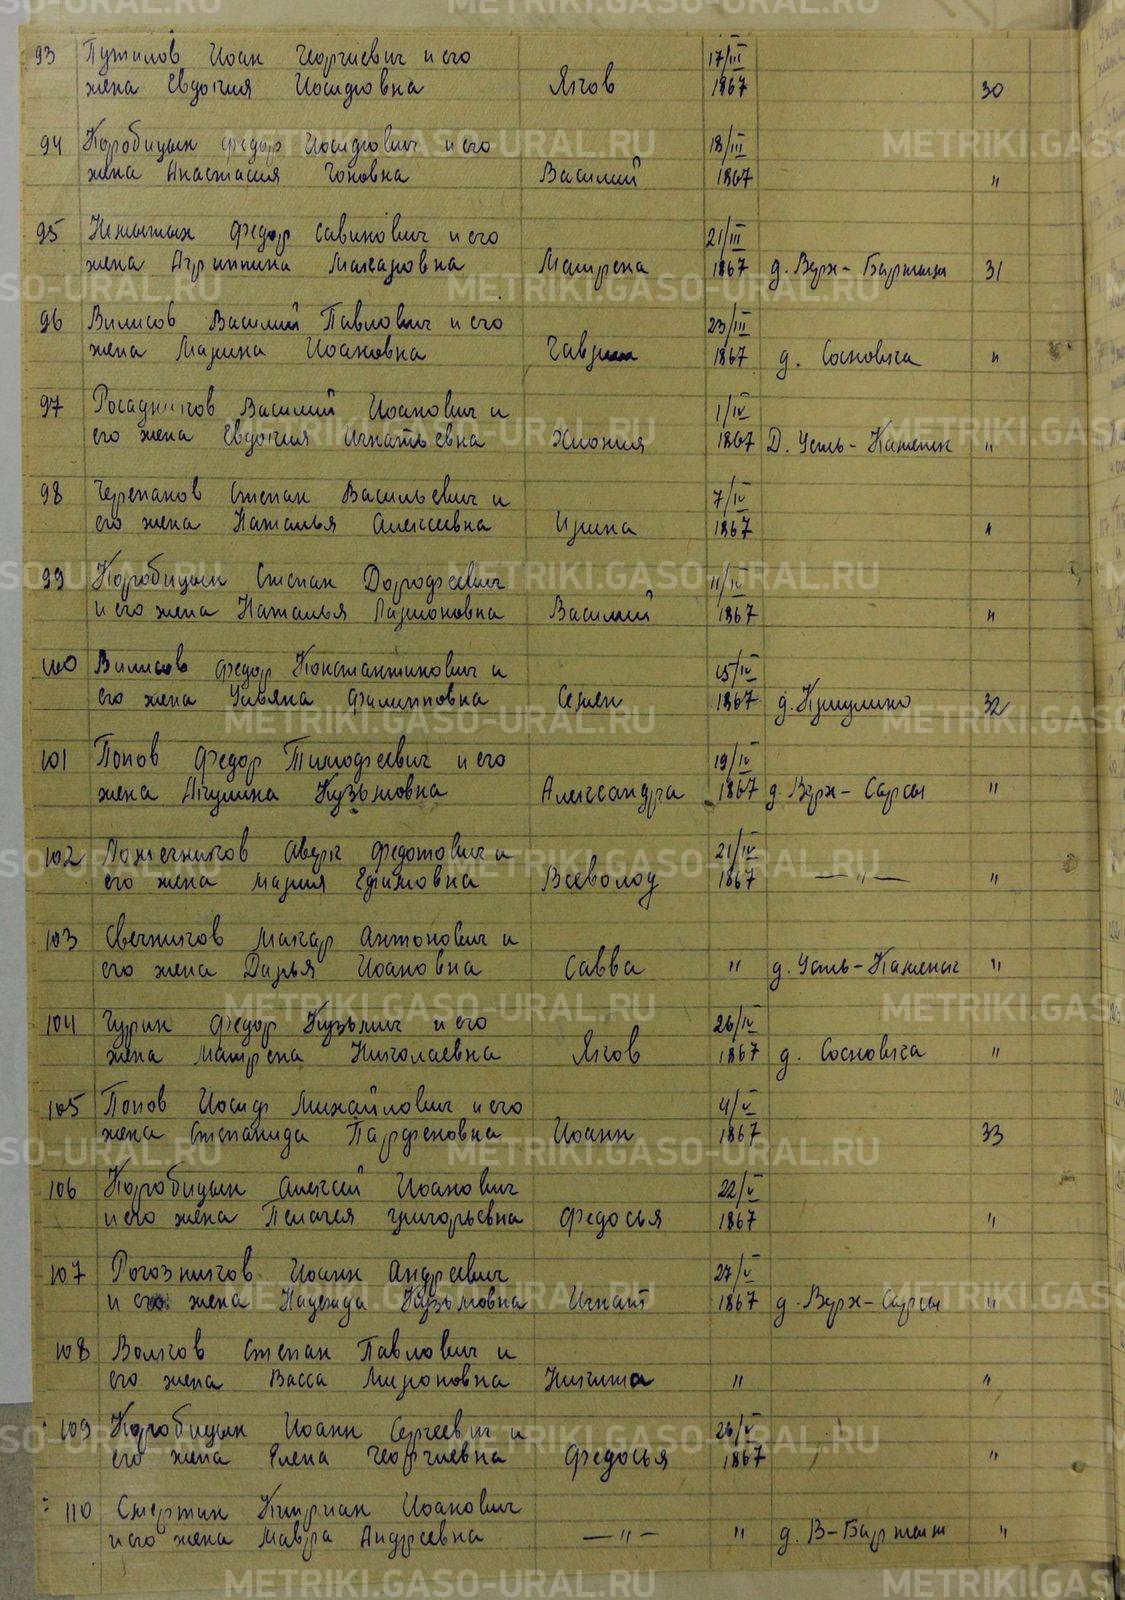 93 Путилов Иоан Георгиевич и его 17/III
жена Евдокия Иосифовна Яков 1867 30
94 Коробицын Федор Иосифович и его 18/III
жена Анастасия Василий 1867 "
95 Федор Савинович и его 21/III
жена Агриппина Макаровна Матрена 1867 д. Верх-Бартым 31
96 Вилисов Василий Павлович и его 23/III
жена Марина Иоановна Гавриил 1867 д. Сосновка "
97 Росадников Василий Иоанович и 1/IV
его жена Евдокия Игнатьевна Хиония 1867 Д. Усть-Каменк "
98 Черепанов Степан Васильевич и 7/IV
его жена Наталья Алексеевна Ирина 1867 "
99 Коробицын Степан Дорофеевич 11/IV
и его жена Наталья Ларионовна Василий 1867 "
100 Вилисов Федор Константинович и 15/IV
его жена Ульяна Филипповна Семен 1867 д. 32
101 Попов Федор Тимофеевич и его 19/IV
жена Акулина Кузьмовна Александра 1867 д. Верх-Сарсы "
102 Ложечников Аверк Федотович и 21/IV
его жена Мария Ефимовна Всеволод 1867 —"— "
103 Свечников Макар Антонович и
его жена Дарья Иоановна Савва " д. Усть-Каменк "
104 Чурин Федор Кузьмич и его 26/IV
жена Матрена Николаевна Яков 1867 д. Сосновка "
105 Попов Иосиф Михайлович и его 4/V
жена Степанида Парфеновна Иоанн 1867 33
106 Коробицын Алексей Иоанович 22/V
и его жена Пелагея Григорьевна Федосья 1867 "
107 Рогозников Иоанн Андреевич 27/V
и его жена Надежда Кузьмовна Игнат 1867 д. Верх-Сарсы "
108 Волков Степан Павлович и
его жена Васса Мироновна Никита " "
109 Коробицын Иоанн Сергеевич и 26/V
его жена Елена Георгиевна Федосья 1867 "
110 Смертин Киприан Иоанович
и его жена Мавра Андреевна —"— " д. В-Бартым "
METRIKI.GASO-URAL.RU